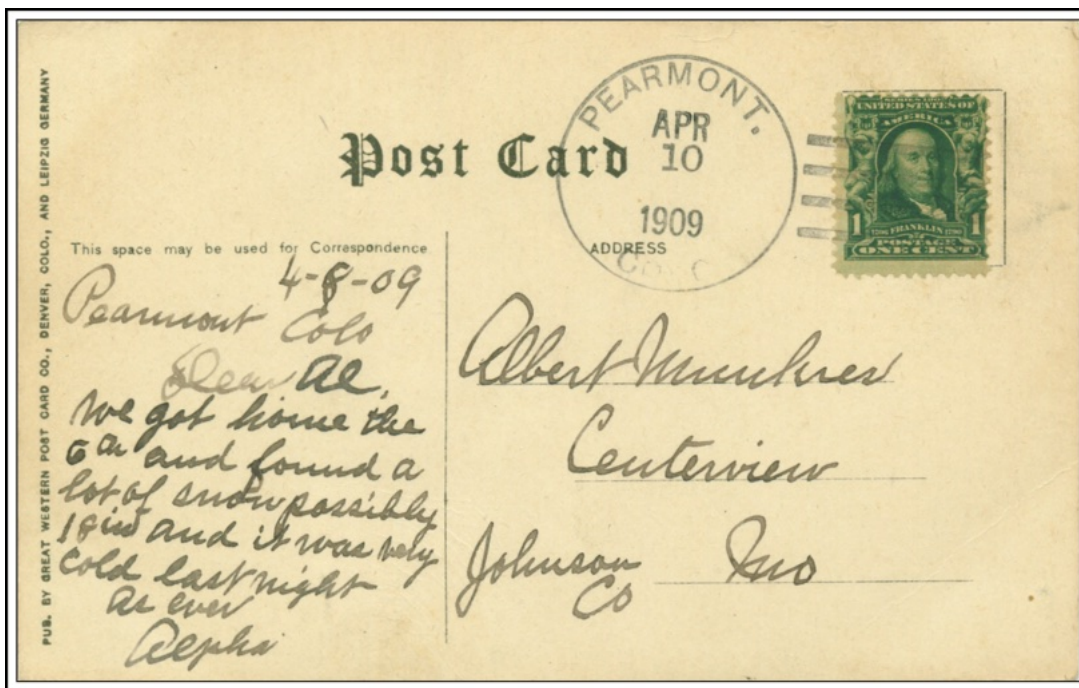 PUB. BY GREAT WESTERN POST CARD CO., DENVER, COLO., AND LEIPZIG GERMANY
Post Card
PEARMONT.
APR
10
1909
COLO.
SERIES 1902
UNITED STATES OF
AMERICA
1 1706 FRANKLIN 1790 1
POSTAGE
ONE CENT
This space may be used for Correspondence
ADDRESS
4-8-09
Pearmont Colo
Dear Al,
We got home the
6th and found a
lot of snow possibly
18 in and it was very
cold last night
As ever
Alpha
Albert Munkres
Centerview
Johnson Mo
Co